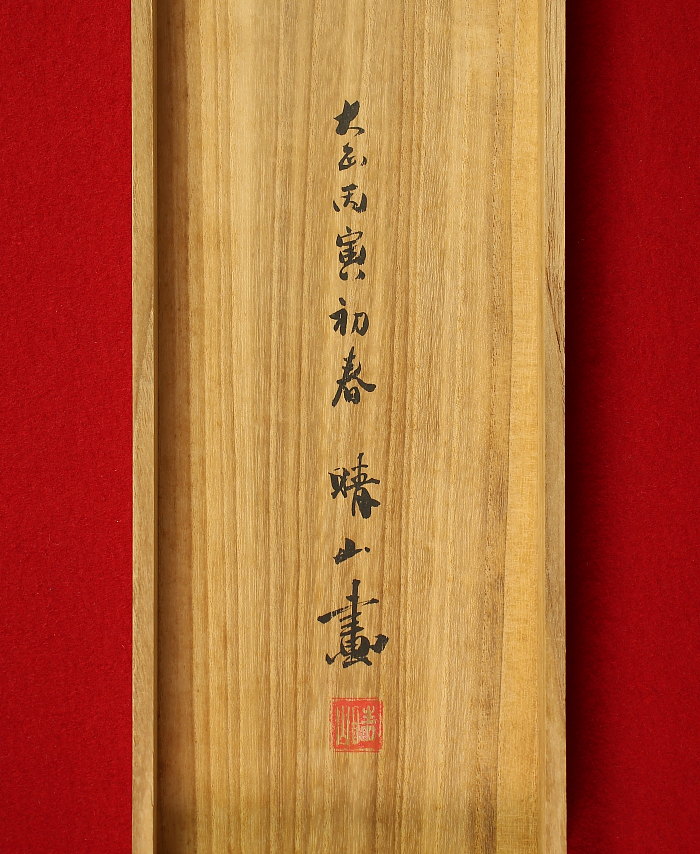 大正丙寅初春 晴山畫